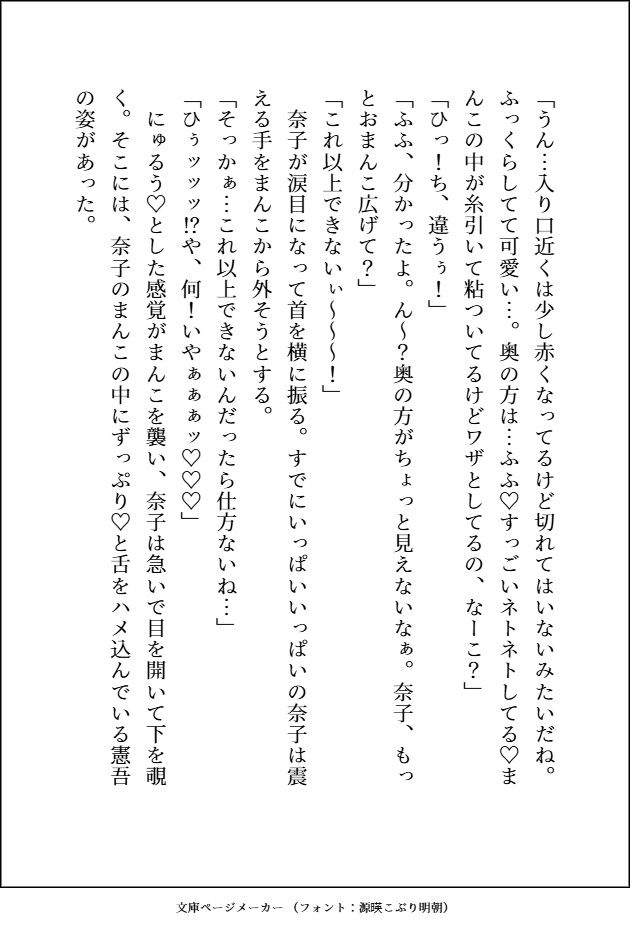 「うん…入り口近くは少し赤くなってるけど切れてはいないみたいだね。
ふっくらしてて可愛い…。奥の方は…ふふ♡すっごいネトネトしてる♡ま
んこの中が糸引いて粘ついてるけどワザとしてるの、なーこ？」
「ひっ！ち、違うぅ！」
「ふふ、分かったよ。ん～？奥の方がちょっと見えないなぁ。奈子、もっ
とおまんこ広げて？」
「これ以上できないぃ～～～！」
奈子が涙目になって首を横に振る。すでにいっぱいいっぱいの奈子は震
える手をまんこから外そうとする。
「そっかぁ…これ以上できないんだったら仕方ないね…」
「ひぅッッッ⁉や、何！いやぁぁぁッ♡♡♡」
にゅるう♡とした感覚がまんこを襲い、奈子は急いで目を開いて下を覗
く。そこには、奈子のまんこの中にずっぷり♡と舌をハメ込んでいる憲吾
の姿があった。
文庫ページメーカー（フォント：源暎こぶり明朝）